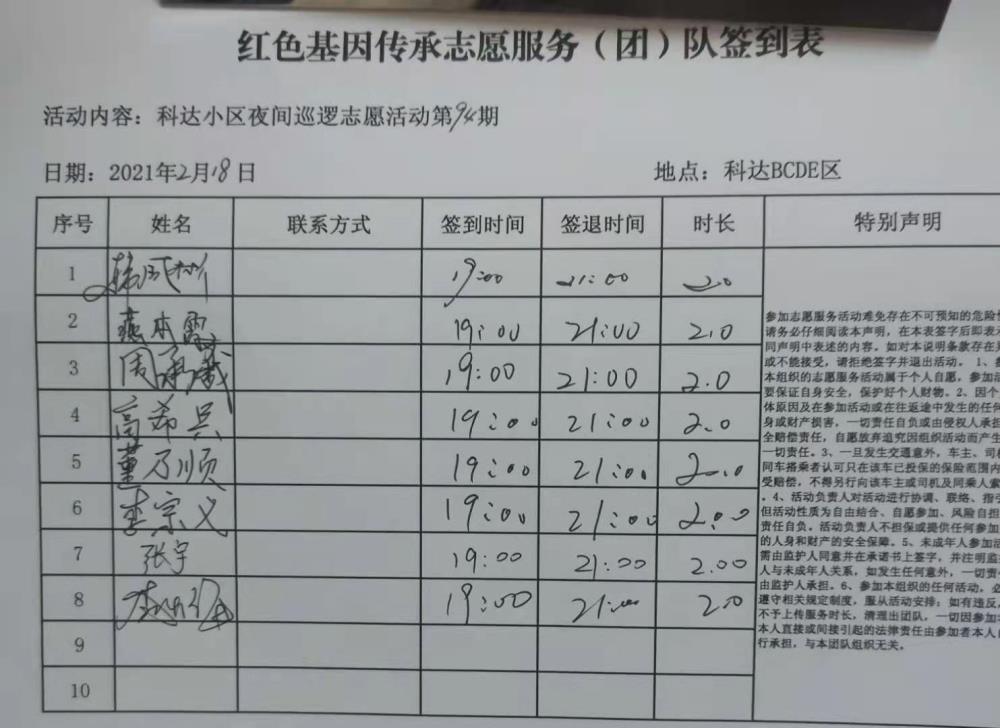 红色基因传承志愿服务（团）队签到表
活动内容：科达小区夜间巡逻志愿活动第94期
日期：2021年2月18日 地点：科达BCDE区
序号 姓名 联系方式 签到时间 签退时间 时长 特别声明
1 19:00 21:00 2.0
2 19:00 21:00 2.0
3 周 19:00 21:00 2.0
4 高希兵 19:00 21:00 2.0
5 董乃顺 19:00 21:00 2.0
6 李宗义 19:00 21:00 2.00
7 张宇 19:00 21:00 2.00
8 19:00 21:00 2.0
9
10
参加志愿服务活动难免存在不可预知的危险
请务必仔细阅读本声明，在本表签字后即表
同声明中表述的内容。如对本说明条款存在
或不能接受，请拒绝签字并退出活动。1、
本组织的志愿服务活动属于个人自愿，参加
要保证自身安全，保护好个人财物。2、因个
体原因及在参加活动或在往返途中发生的任何
身或财产损害，一切责任自负或由侵权人承担
全赔偿责任，自愿放弃追究因组织活动而产生
一切责任。3、一旦发生交通意外，车主、司
同车搭乘者认可只在该车已投保的保险范围内
受赔偿，不得另行向该车主或司机及同乘人索
。4、活动负责人对活动进行协调、联络、指
但活动性质为自由结合、自愿参加、风险自担
责任自负。活动负责人不担保或提供任何参加
的人身和财产的安全保障。5、未成年人参加
需由监护人同意并在承诺书上签字，并注明监
人与未成年人关系，如发生任何意外，一切责
由监护人承担。6、参加本组织的任何活动，必
遵守相关规定制度，服从活动安排；如有违反，
不予上传服务时长，清理出团队，一切因参加
本人直接或间接引起的法律责任由参加者本人
行承担，与本团队组织无关。